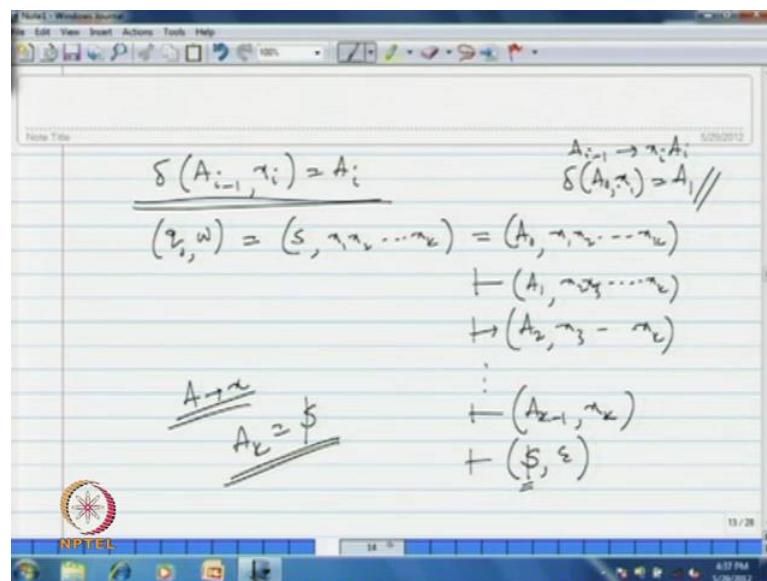 Note1 - Windows Journal
File Edit View Insert Actions Tools Help
100%
Note Title
5/29/2012
A_{i-1} → x_i A_i
δ(A_{i-1}, x_i) = A_i
δ(A_0, x_1) = A_1 //
(q_0, w) = (S, x_1 x_2 ... x_k) = (A_0, x_1 x_2 --- x_k)
⊢ (A_1, x_2 x_3 ... x_k)
⊢ (A_2, x_3 - x_k)
⋮
A → x
⊢ (A_{k-1}, x_k)
A_k = $
⊢ ($, ε)
13 / 28
NPTEL
14
4:37 PM
5/29/2012